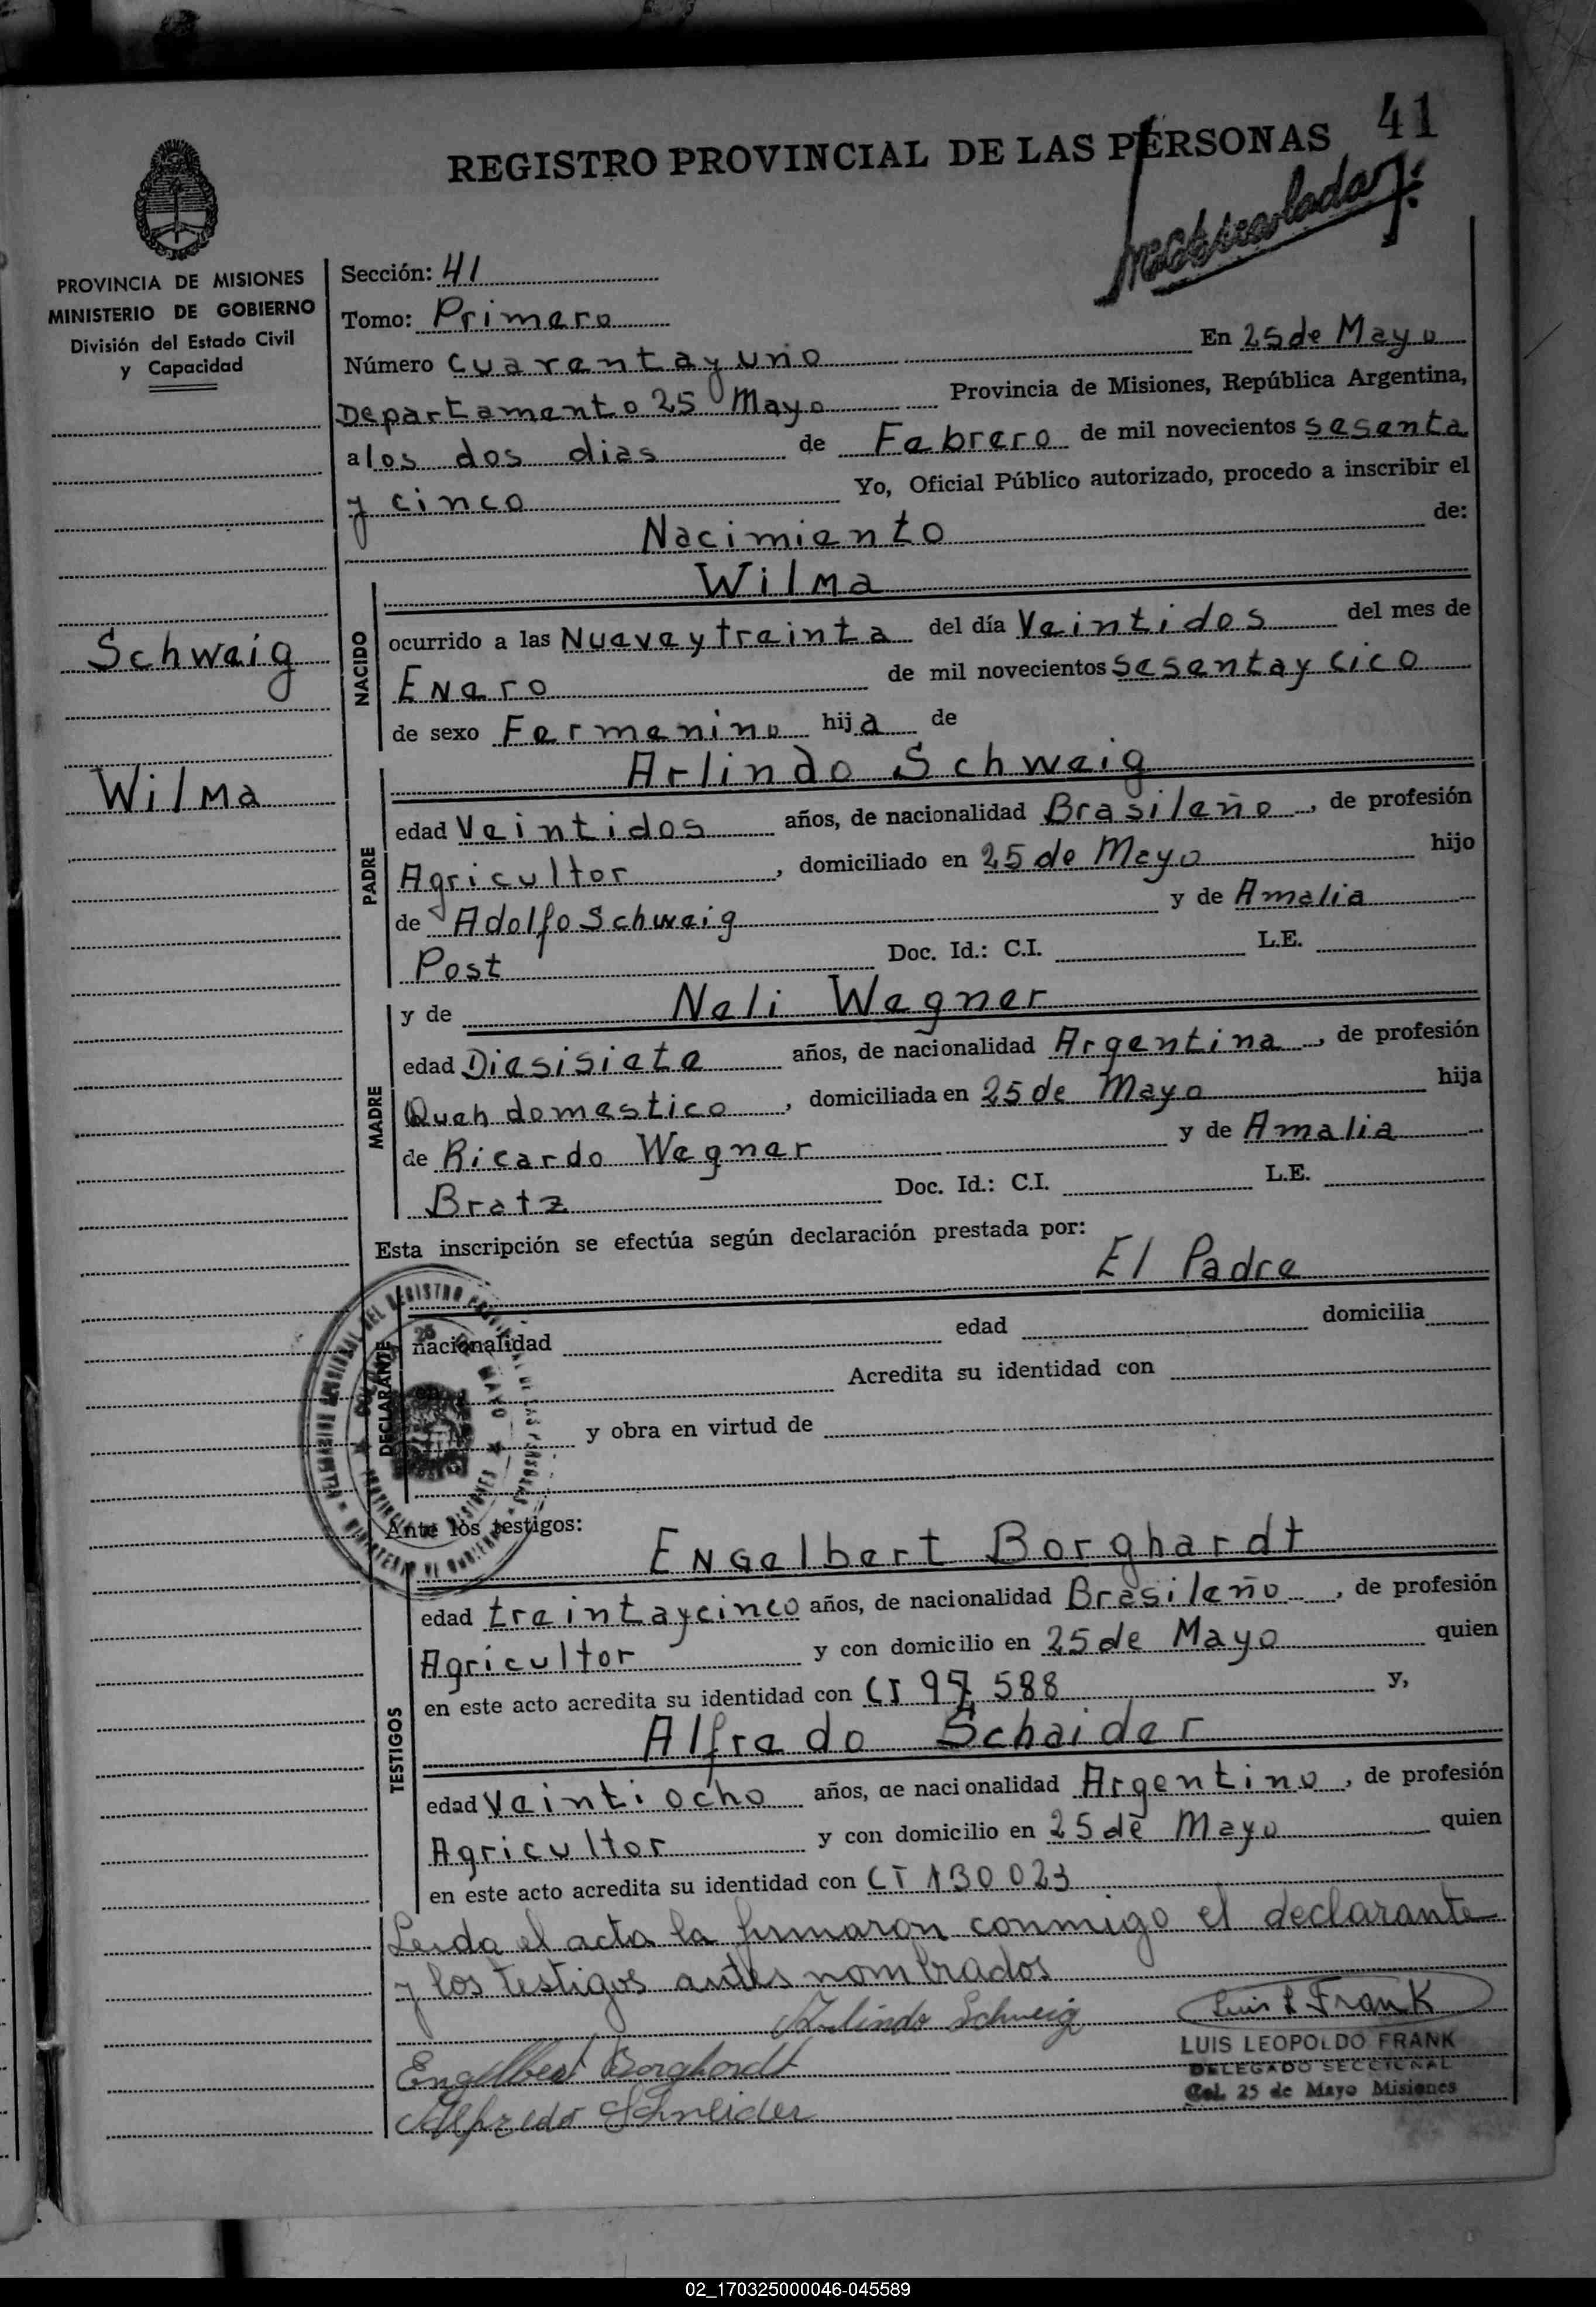 41
REGISTRO PROVINCIAL DE LAS PERSONAS
Matriculada
PROVINCIA DE MISIONES
MINISTERIO DE GOBIERNO
División del Estado Civil
y Capacidad
Schweig
Wilma
Sección: 41
Tomo: Primero
Número cuarenta y uno En 25 de Mayo
Departamento 25 Mayo Provincia de Misiones, República Argentina,
a los dos dias de Febrero de mil novecientos sesenta
y cinco Yo, Oficial Público autorizado, procedo a inscribir el
Nacimiento de:
Wilma
NACIDO
ocurrido a las Nueve y treinta del día Veintidos del mes de
Enero de mil novecientos sesenta y cico
de sexo Fermenino hija de
Arlindo Schweig
PADRE
edad Veintidos años, de nacionalidad Brasileño, de profesión
Agricultor, domiciliado en 25 de Mayo hijo
de Adolfo Schweig y de Amalia
Post Doc. Id.: C.I. L.E.
y de Neli Wegner
MADRE
edad Diesisiete años, de nacionalidad Argentina, de profesión
Queh domestico, domiciliada en 25 de Mayo hija
de Ricardo Wegner y de Amalia
Bratz Doc. Id.: C.I. L.E.
Esta inscripción se efectúa según declaración prestada por:
El Padre
DECLARANTE
nacionalidad edad domicilia
Acredita su identidad con
y obra en virtud de
Ante los testigos:
Engelbert Borghardt
TESTIGOS
edad treinta y cinco años, de nacionalidad Brasileño, de profesión
Agricultor y con domicilio en 25 de Mayo quien
en este acto acredita su identidad con CI 97 588 y,
Alfredo Schaider
edad Veinti ocho años, de nacionalidad Argentino, de profesión
Agricultor y con domicilio en 25 de Mayo quien
en este acto acredita su identidad con CI 130 023
Leida el acta la firmaron conmigo el declarante
y los testigos antes nombrados
Arlindo Schweig
Luis L Frank
LUIS LEOPOLDO FRANK
DELEGADO SECCIONAL
Col. 25 de Mayo Misiones
Engelbert Borghardt
Alfredo Schneider
02_170325000046-045589